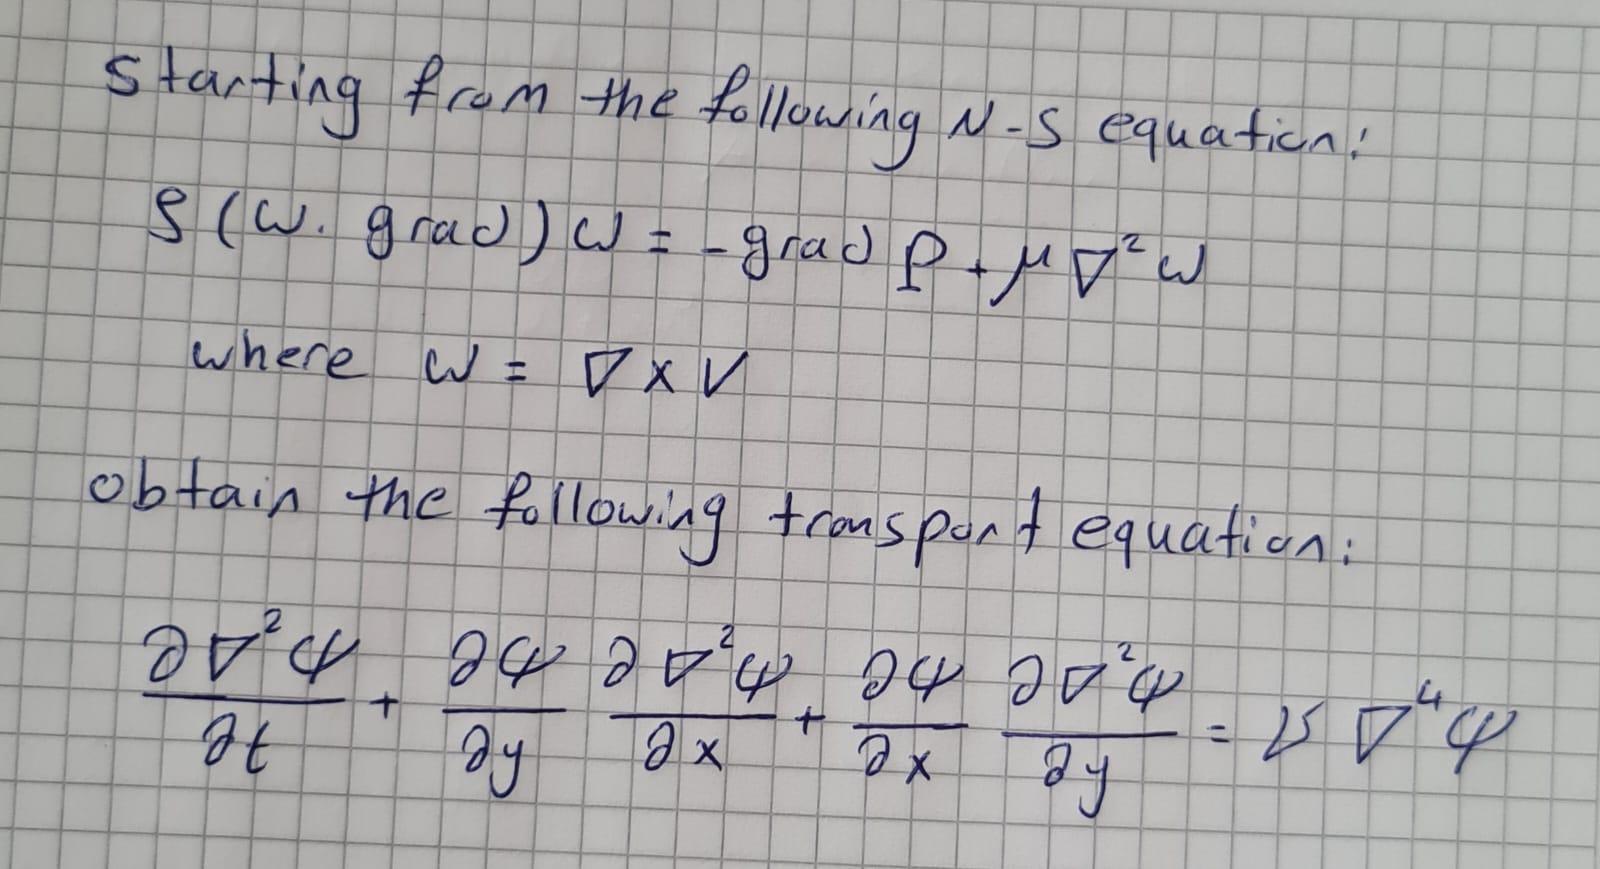 Starting from the following N-S equation:
ρ(ω. grad)ω = -grad P + μ∇²ω
where ω = ∇ x V
obtain the following transport equation:
∂∇²ψ/∂t + ∂ψ/∂y ∂∇²ψ/∂x + ∂ψ/∂x ∂∇²ψ/∂y = ν ∇⁴ψ